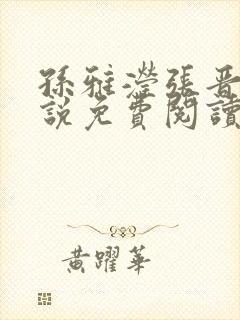 孫雅瀅張晋
說免費閱讀
黃躍華